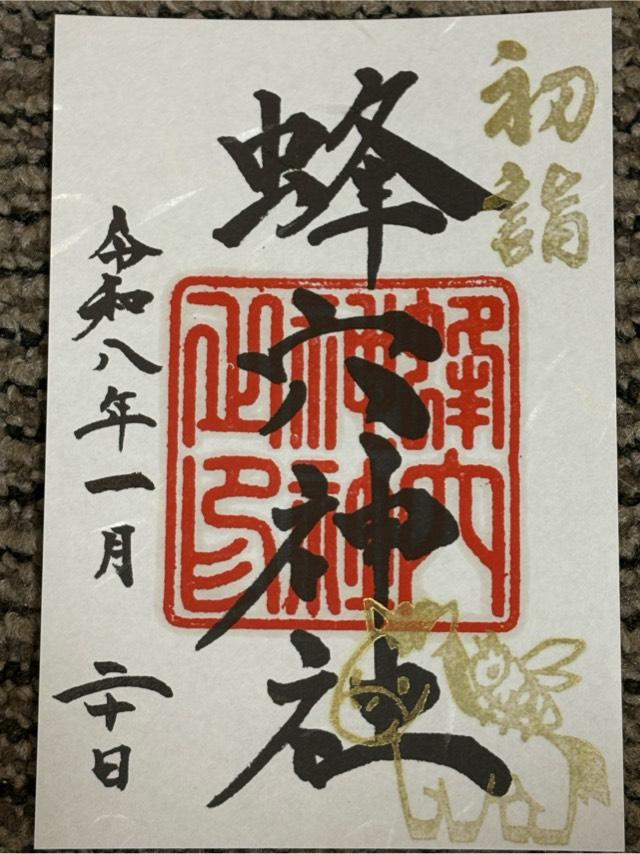 初詣
蜂穴神社
蜂穴
神社
之印
令和八年一月
二十日